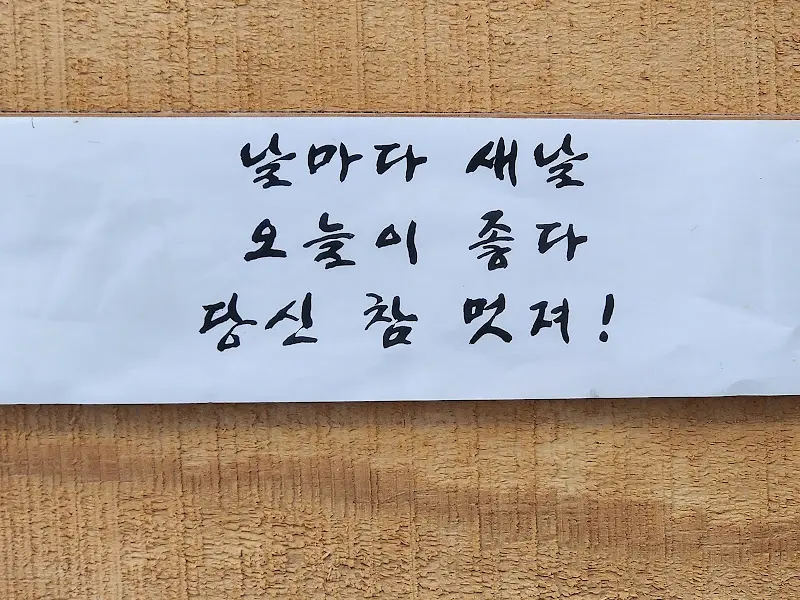 날마다 새날
오늘이 좋다
당신 참 멋져!